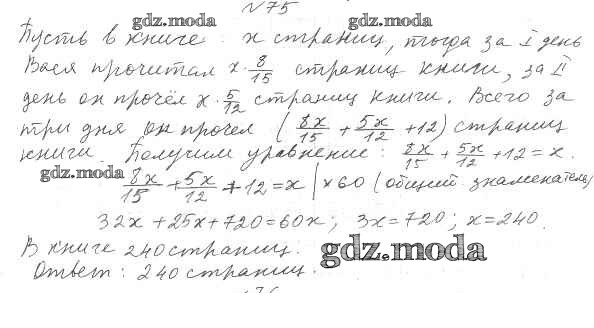 №75
gdz.moda gdz.moda gdz.moda
Пусть в книге x страниц, тогда за I день
Вася прочитал x · 8/15 страниц книги, за II
день он прочёл x · 5/12 страниц книги. Всего за
три дня он прочел (8x/15 + 5x/12 + 12) страниц
книги. Получим уравнение: 8x/15 + 5x/12 + 12 = x.
gdz.moda 8x/15 + 5x/12 + 12 = x | ×60 (общий знаменатель)
32x + 25x + 720 = 60x; 3x = 720; x = 240.
В книге 240 страниц. gdz.moda
Ответ: 240 страниц.